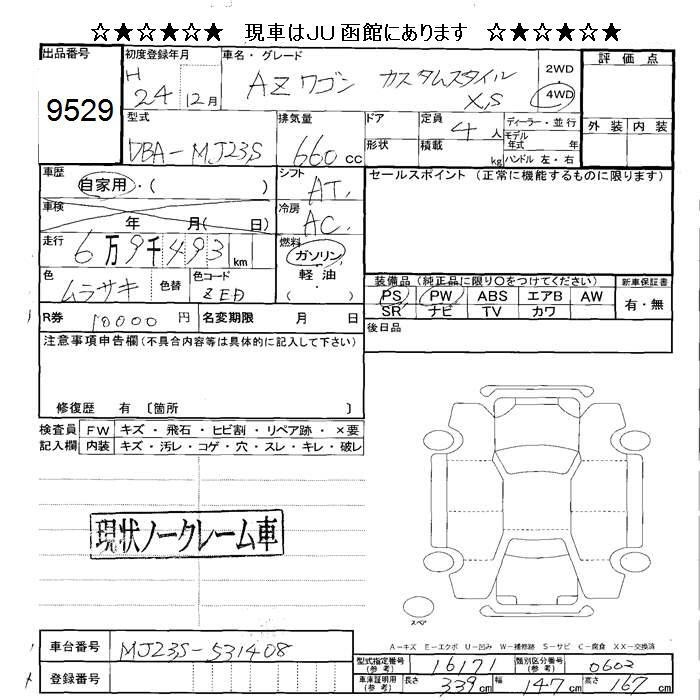 ☆★☆★☆★ 現車はJU函館にあります ☆★☆★☆★
出品番号 初度登録年月 車名・グレード 2WD 評価点
9529 H 24 12月 AZワゴン カスタムスタイル XS 4WD
型式 排気量 ドア 定員 4人 ディーラー・並行 外装 内装
DBA-MJ23S 660cc 形状 積載 kg モデル年式 年 ハンドル 左・右
車歴 自家用・( ) シフト AT セールスポイント (正常に機能するものに限ります)
車検 年 月( 日) 冷房 AC
走行 6万9千493km 燃料 ガソリン 軽油 ( )
色 ムラサキ 色替 色コード ZED
装備品 (純正品に限り○をつけてください) 新車保証書
PS PW ABS エアB AW 有・無
SR ナビ TV カワ
R券 10000円 名変期限 月 日 後日品
注意事項申告欄 (不具合内容等は具体的に記入して下さい)
修復歴 有 〔箇所 〕
検査員 FW キズ・飛石・ヒビ割・リペア跡・×要
記入欄 内装 キズ・汚レ・コゲ・穴・スレ・キレ・破レ
現状ノークレーム車
スペア
A-キズ E-エクボ U-凹み W-補修跡 S-サビ C-腐食 XX-交換済
車台番号 MJ23S-531408
型式指定番号 (参考) 16171 類別区分番号 (参考) 0602
登録番号 車庫証明用 (参考) 長さ 339cm 幅 147cm 高さ 167cm